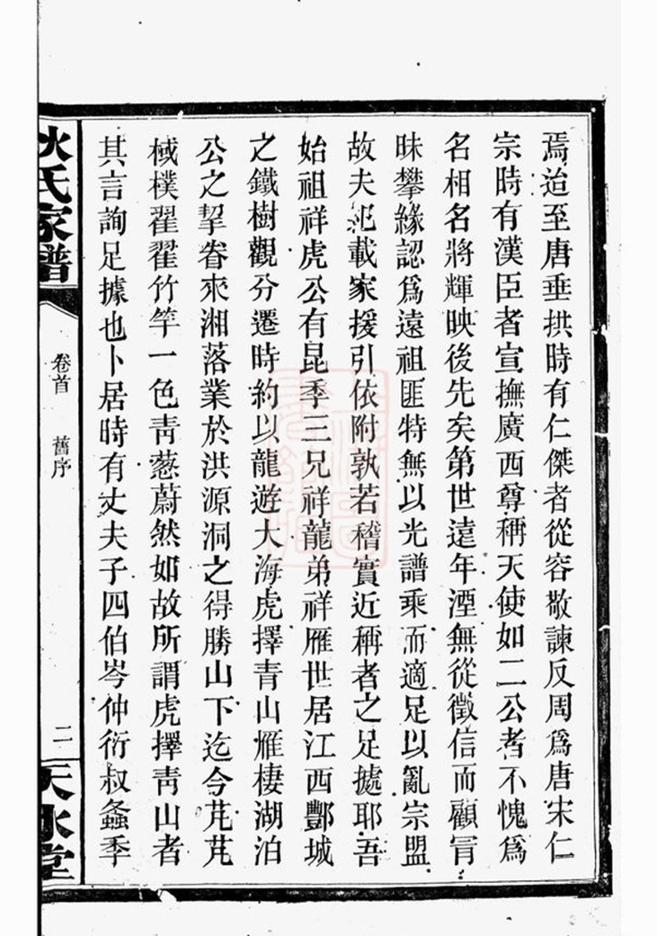 焉迨至唐垂拱時有仁傑者從容敬諫反周爲唐宋仁
宗時有漢臣者宣撫廣西尊稱天使如二公者不愧爲
名相名將輝映後先矣第世遠年湮無從徵信而顧冐
昧攀緣認爲遠祖匪特無以光譜乘而適足以亂宗盟
故夫汜載家援引依附孰若稽實近稱者之足據耶吾
始祖祥虎公有昆季三兄祥龍弟祥雁世居江西酆城
之鐵樹觀分遷時約以龍遊大海虎擇青山雁棲湖泊
公之挈眷來湘落業於洪源洞之得勝山下迄今芃芃
棫樸翟翟竹竿一色靑蔥蔚然如故所謂虎擇靑山者
其言詢足據也卜居時有丈夫子四伯岑仲衍叔螽季
狄氏家譜
卷首 舊序
二
天水堂